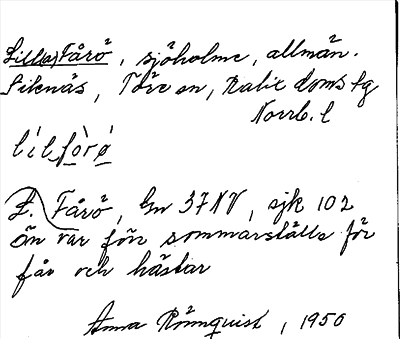 Lilla Fårö, sjöholme, allmän.
Siknäs, Töre sn, Kalix doms tg
Norrb. l
lílfò̀rø
L. Fårö, Gn 37 NV, sjk 102
ön var förr sommarställe för
får och hästar
Anna Rönnquist, 1950